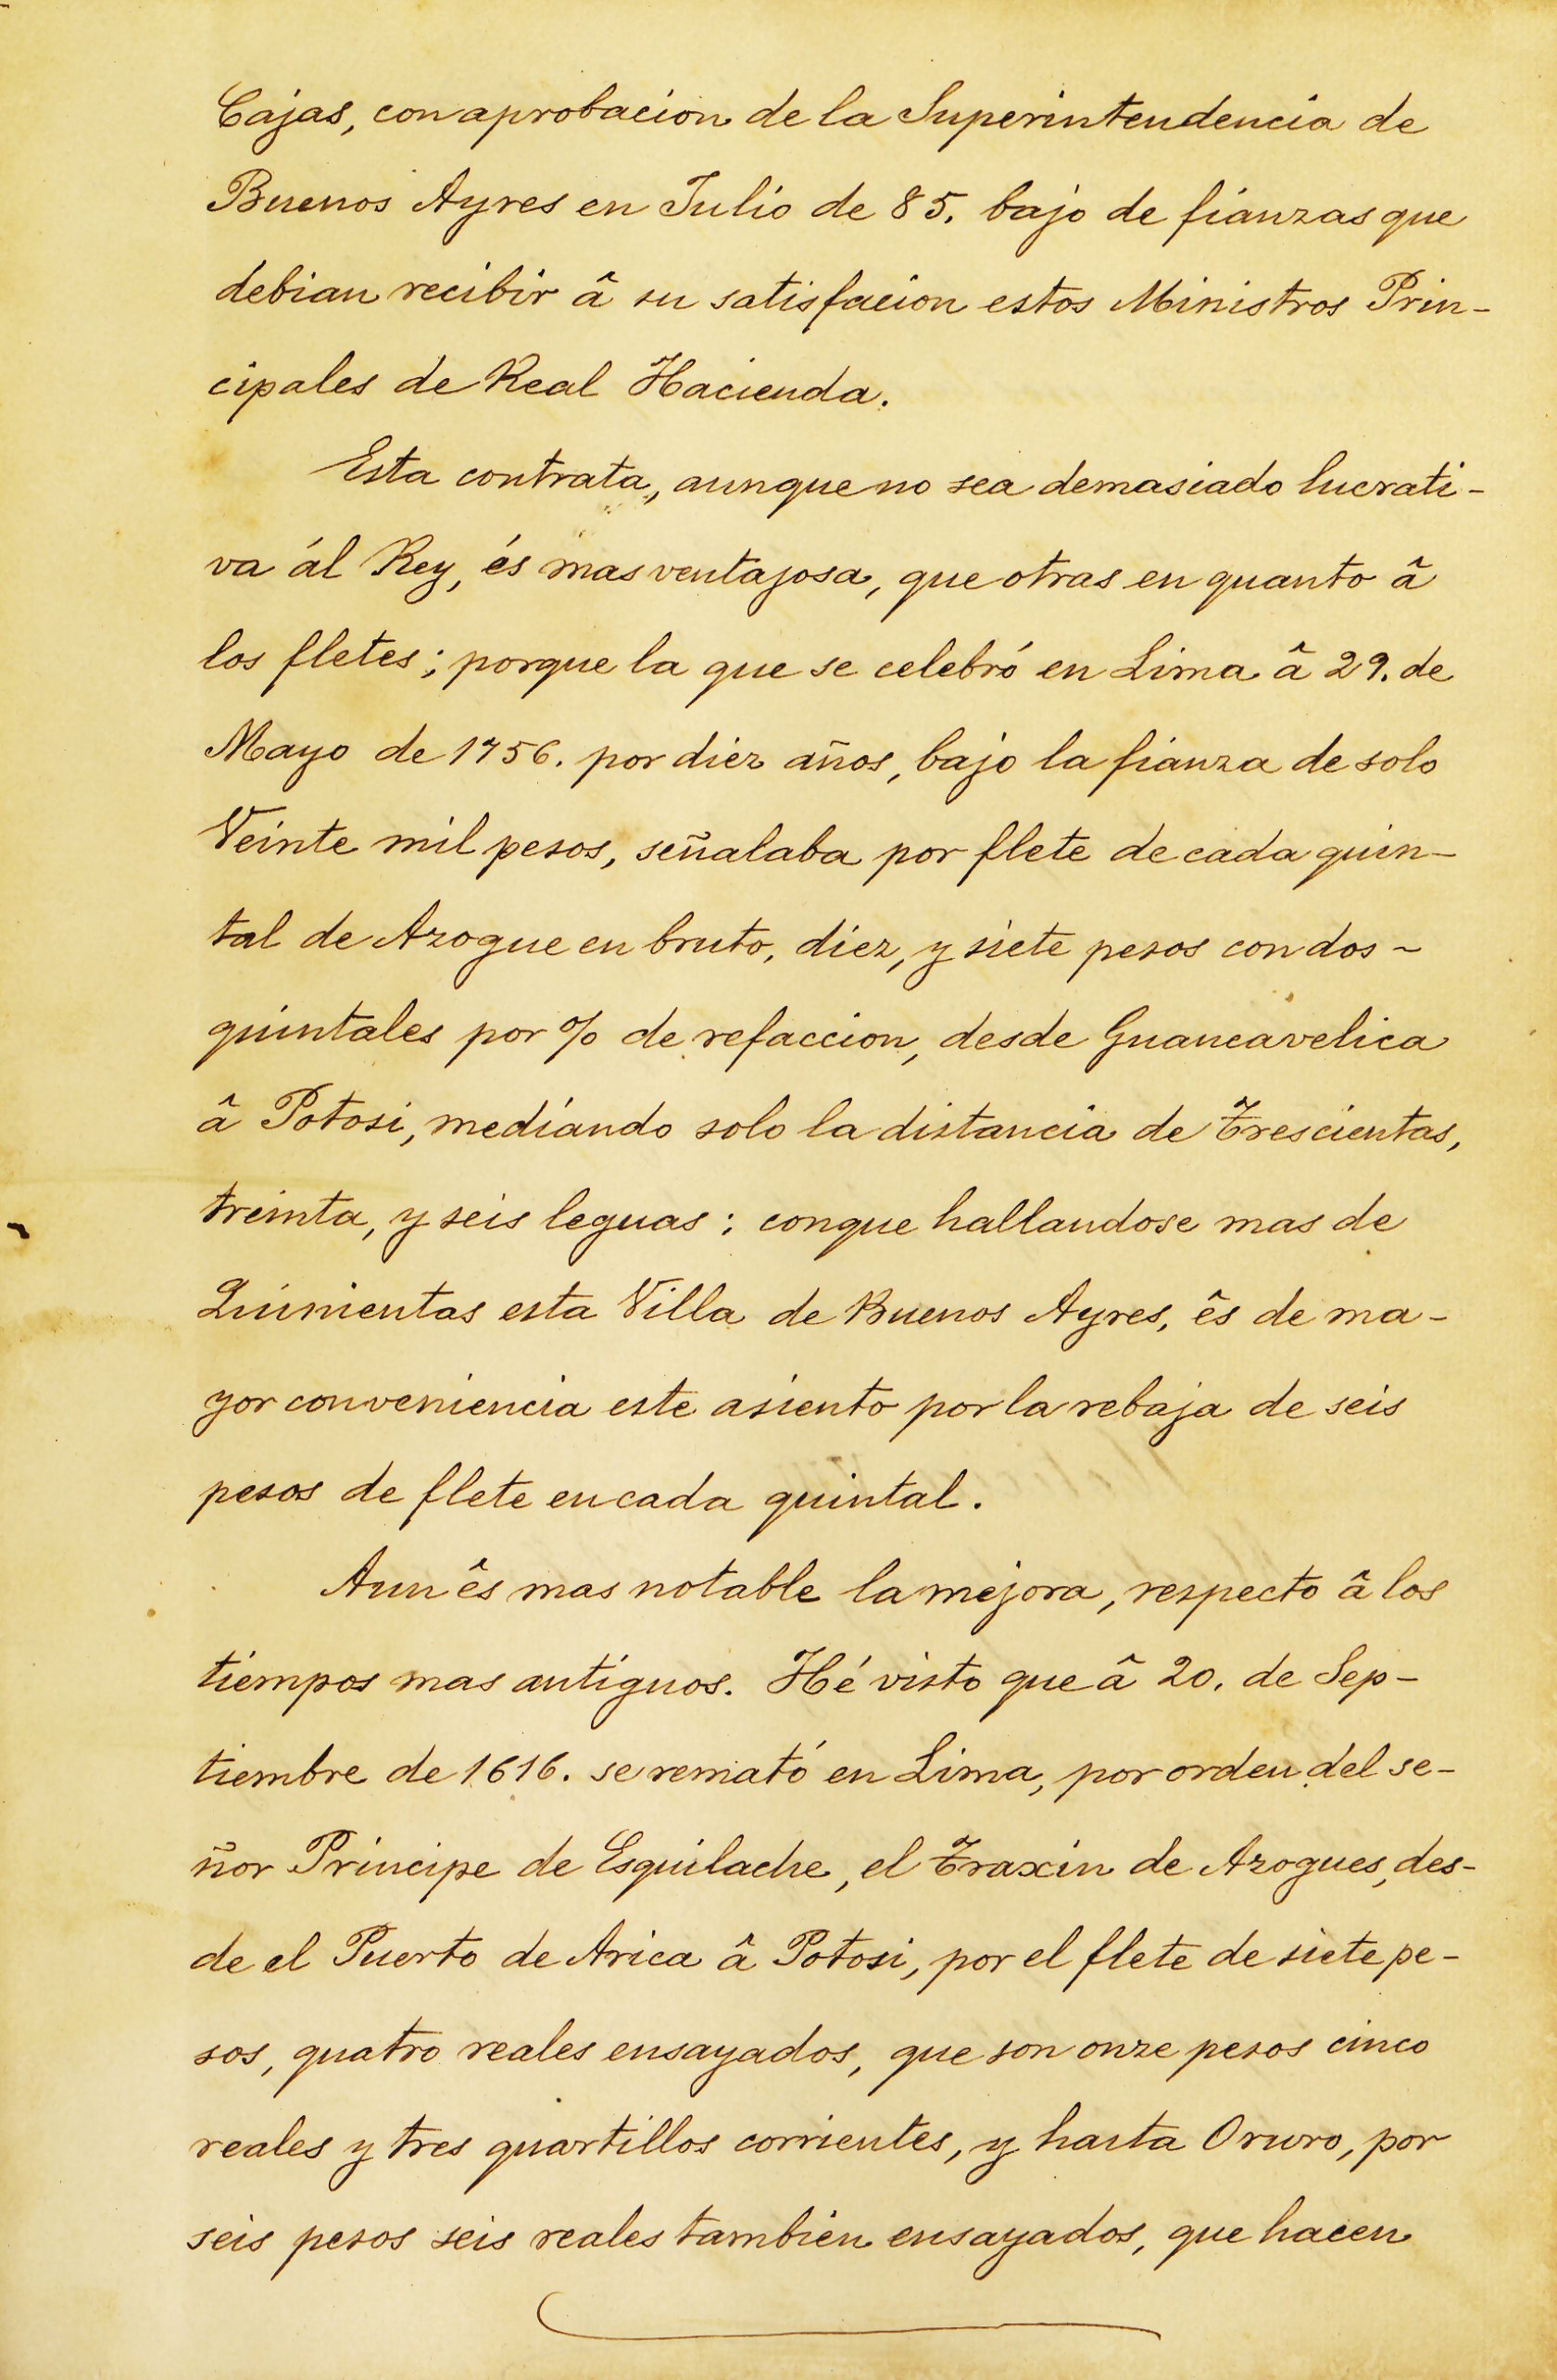 Cajas, con aprobacion de la Superintendencia de
Buenos Ayres en Julio de 85. bajo de fianzas que
debian recibir â su satisfacion estos Ministros Prin-
cipales de Real Hacienda.
Esta contrata, aunque no sea demasiado lucrati-
va ál Rey, és mas ventajosa, que otras en quanto â
los fletes; porque la que se celebró en Lima â 29. de
Mayo de 1756. por diez años, bajo la fianza de solo
Veinte mil pesos, señalaba por flete de cada quin-
tal de Azogue en bruto, diez, y siete pesos con dos -
quintales por % de refaccion, desde Guancavelica
â Potosi, mediando solo la distancia de Trescientas,
treinta, y seis leguas: conque hallandose mas de
Quinientas esta Villa de Buenos Ayres, ês de ma-
yor conveniencia este asiento por la rebaja de seis
pesos de flete en cada quintal.
Aun ês mas notable la mejora, respecto â los
tiempos mas antiguos. Hé visto que â 20. de Sep-
tiembre de 1616. se remató en Lima, por orden del se-
ñor Principe de Esquilache, el Traxin de Azogues, des-
de el Puerto de Arica â Potosi, por el flete de siete pe-
sos, quatro reales ensayados, que son onze pesos cinco
reales y tres quartillos corrientes, y hasta Oruro, por
seis pesos seis reales tambien ensayados, que hacen